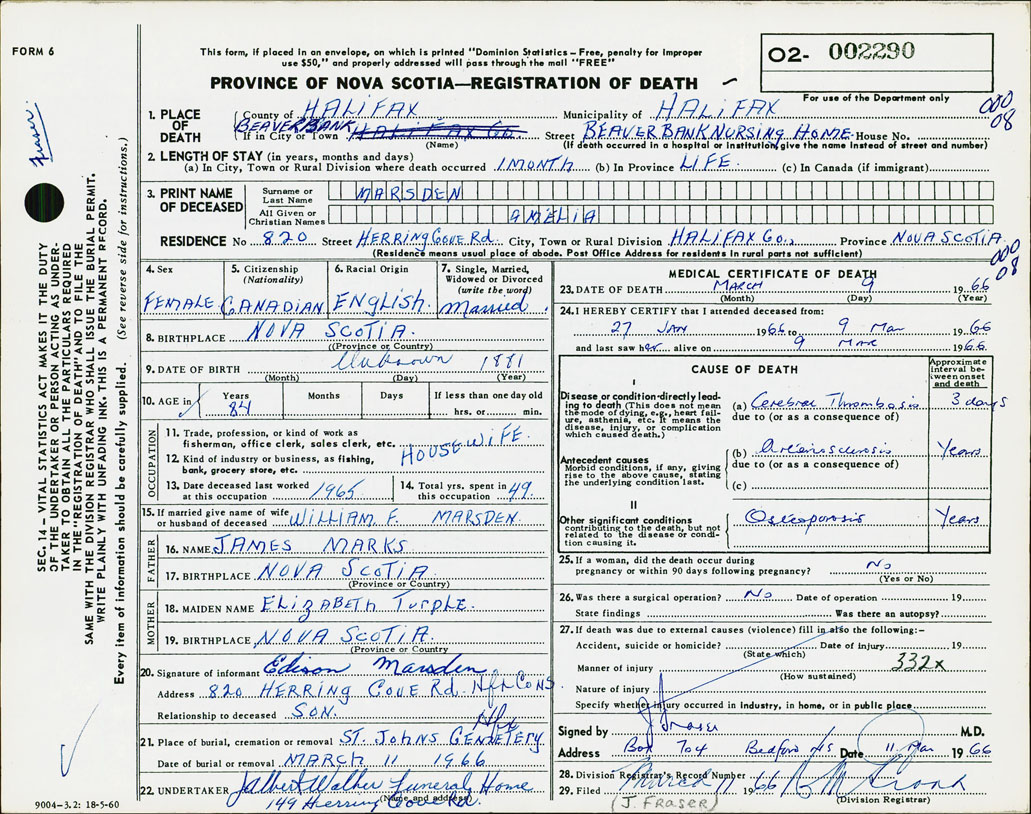 FORM 6
This form, if placed in an envelope, on which is printed "Dominion Statistics – Free, penalty for improper
use $50," and properly addressed will pass through the mail "FREE"
PROVINCE OF NOVA SCOTIA—REGISTRATION OF DEATH
02- 002290
For use of the Department only
000
08
Fraser
SEC. 14 – VITAL STATISTICS ACT MAKES IT THE DUTY
OF THE UNDERTAKER OR PERSON ACTING AS UNDER-
TAKER TO OBTAIN ALL THE PARTICULARS REQUIRED
IN THE "REGISTRATION OF DEATH" AND TO FILE THE
SAME WITH THE DIVISION REGISTRAR WHO SHALL ISSUE THE BURIAL PERMIT.
WRITE PLAINLY WITH UNFADING INK. THIS IS A PERMANENT RECORD.
Every item of information should be carefully supplied. (See reverse side for instructions.)
1. PLACE OF DEATH
County of HALIFAX Municipality of HALIFAX
If in City or Town BEAVER BANK HALIFAX CO. (Name) Street BEAVER BANK NURSING HOME House No.
(If death occurred in a hospital or institution, give the name instead of street and number)
2. LENGTH OF STAY (in years, months and days)
(a) In City, Town or Rural Division where death occurred 1 MONTH (b) In Province LIFE. (c) In Canada (if immigrant)
3. PRINT NAME OF DECEASED
Surname or Last Name MARSDEN
All Given or Christian Names AMELIA
RESIDENCE No 820 Street HERRING COVE Rd. City, Town or Rural Division HALIFAX CO., Province NOVA SCOTIA.
(Residence means usual place of abode. Post Office Address for residents in rural parts not sufficient)
000
08
4. Sex FEMALE
5. Citizenship (Nationality) CANADIAN
6. Racial Origin ENGLISH.
7. Single, Married, Widowed or Divorced (write the word) Married
8. BIRTHPLACE NOVA SCOTIA.
(Province or Country)
9. DATE OF BIRTH Unknown 1881
(Month) (Day) (Year)
10. AGE in Years 84 Months Days If less than one day old hrs. or min.
OCCUPATION
11. Trade, profession, or kind of work as
fisherman, office clerk, sales clerk, etc. HOUSEWIFE.
12. Kind of industry or business, as fishing,
bank, grocery store, etc.
13. Date deceased last worked
at this occupation 1965
14. Total yrs. spent in
this occupation 49.
15. If married give name of wife
or husband of deceased WILLIAM. F. MARSDEN.
FATHER
16. NAME JAMES MARKS
17. BIRTHPLACE NOVA SCOTIA.
(Province or Country)
MOTHER
18. MAIDEN NAME ELIZABETH TURPLE.
19. BIRTHPLACE NOVA SCOTIA.
(Province or Country
20. Signature of informant Edison Marsden
Address 820 HERRING COVE Rd Hfx Co NS.
Relationship to deceased SON.
Hfx
21. Place of burial, cremation or removal ST. JOHNS CEMETERY
Date of burial or removal MARCH 11 1966
22. UNDERTAKER J Albert Walker Funeral Home
149 Herring Cove Rd.
(Name and address)
9004-3.2: 18-5-60
MEDICAL CERTIFICATE OF DEATH
23. DATE OF DEATH MARCH 9 1966
(Month) (Day) (Year)
24. I HEREBY CERTIFY that I attended deceased from:
27 Jan 1966 to 9 Mar 1966
and last saw her alive on 9 Mar 1966.
CAUSE OF DEATH
Approximate
interval be-
tween onset
and death
I
Disease or condition directly lead-
ing to death (This does not mean
the mode of dying, e.g., heart fail-
ure, asthenia, etc. It means the
disease, injury, or complication
which caused death.)
(a) Cerebral Thrombosis 3 days
due to (or as a consequence of)
Antecedent causes
Morbid conditions, if any, giving
rise to the above cause, stating
the underlying condition last.
(b) Arteriosclerosis Years
due to (or as a consequence of)
(c)
II
Other significant conditions
contributing to the death, but not
related to the disease or condi-
tion causing it.
Osteoporosis Years
25. If a woman, did the death occur during
pregnancy or within 90 days following pregnancy? No
(Yes or No)
26. Was there a surgical operation? No Date of operation 19
State findings Was there an autopsy?
27. If death was due to external causes (violence) fill in also the following:–
Accident, suicide or homicide? Date of injury 19
(State which)
Manner of injury 332X
(How sustained)
Nature of injury
Specify whether injury occurred in industry, in home, or in public place
Signed by J Fraser M.D.
Address Box 704 Bedford NS Date 11 Mar 1966
28. Division Registrar's Record Number
29. Filed March 11 1966
(J. FRASER)
(Division Registrar)